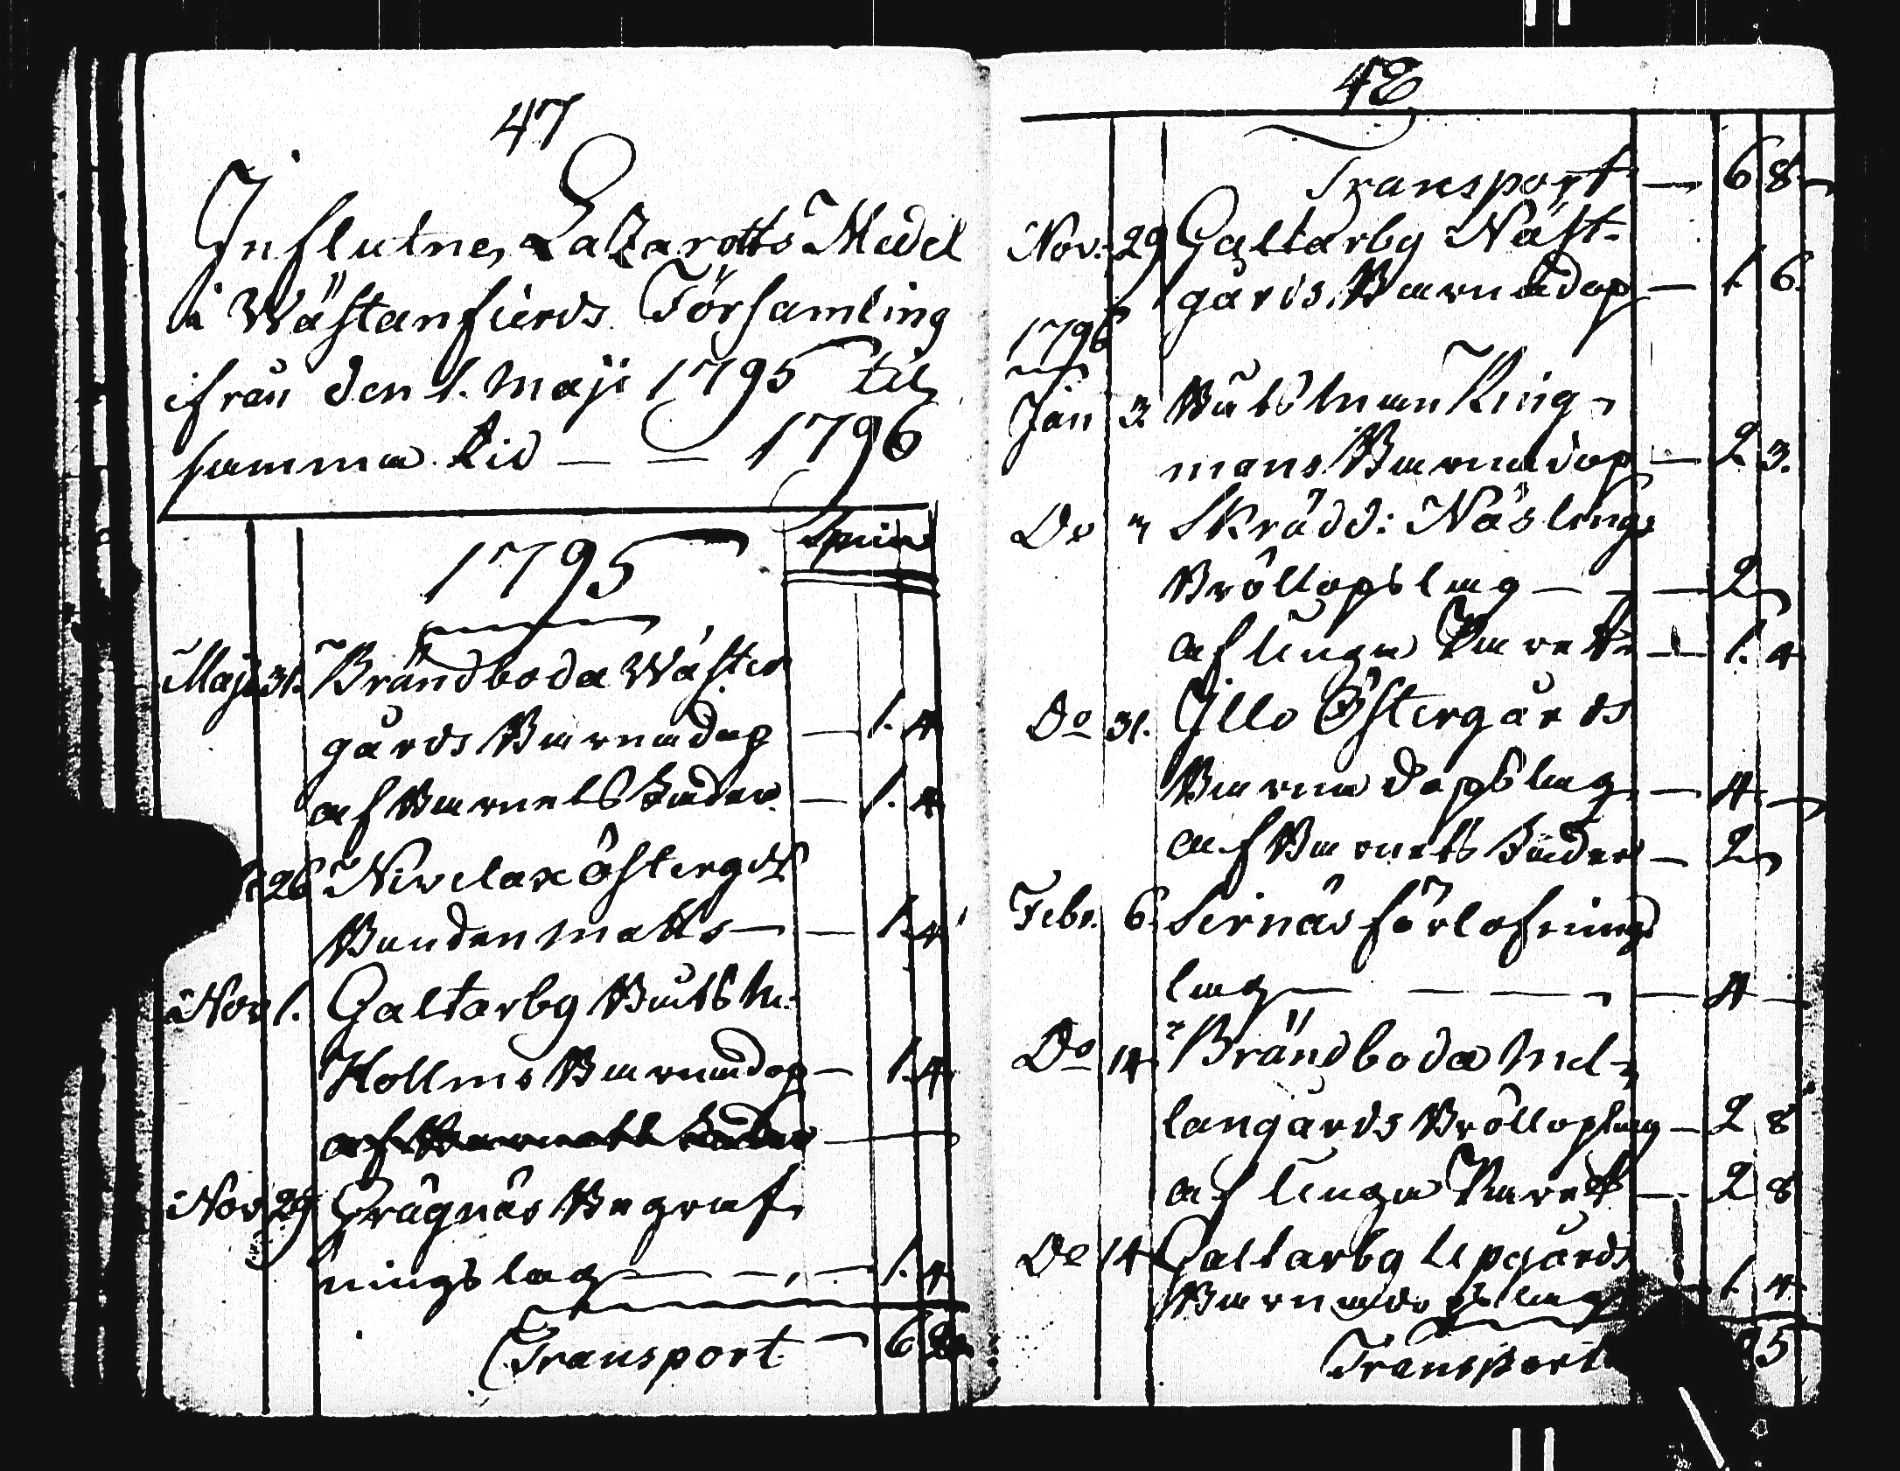 47
Influtne Lazaretts Medel
i Wästanfierds Församling
ifrån den 1. Maji 1795 til
samma tid — — 1796
1795
Maji 31. Brändboda Wäster
gårds Barnadop — 1. 4
af Barnets Fader — 1. 4
26 Nivelax Östergds
Bonden Matts — — 1. 4
Nov 1. Galtarby Båtsm.
Hollms Barnadop — 1. 4
af Barnets Fader —
Nov 29 Grågnäs Begraf
ningslag — — — 1. 4
Transport — 6
48
Transport — 6 8 —
Nov. 29 Galtarby Näst-
gårds Barnadop — 1 6.
1796
Jan 3 Båtsman Ring-
mans Barnadop — 2 3.
Do Skrädd: Näslings
Bröllopslag — — — 2
af unga Paret — 1. 4
Do 31. Illo Östergårds
Barnadopslag — 4 —
af Barnets Fader — 2
Febr. 6. Sirnäs förlofnings
lag — — — — 4 —
Do 14. Brändboda Mel-
langårds Bröllopslag — 2 8
af unga Paret — 2 8
Do 14 Galtarby Uppgårds
Barnadopslag 1. 4
Transport 5